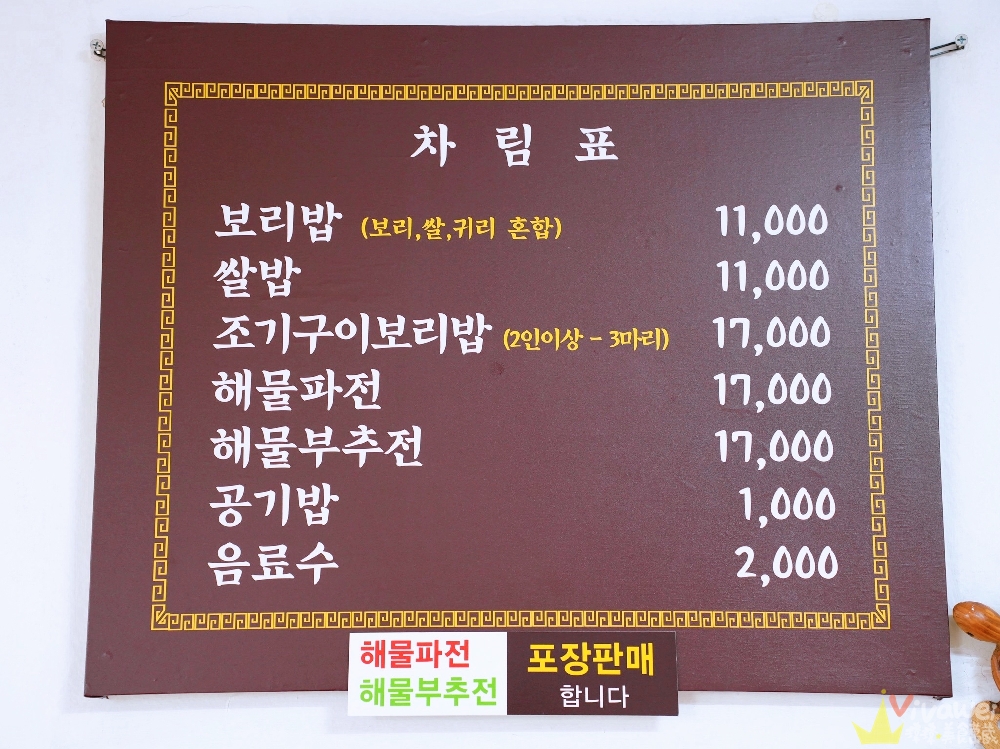 차 림 표
보리밥 (보리,쌀,귀리 혼합) 11,000
쌀밥 11,000
조기구이보리밥 (2인이상 - 3마리) 17,000
해물파전 17,000
해물부추전 17,000
공기밥 1,000
음료수 2,000
해물파전
해물부추전
포장판매
합니다